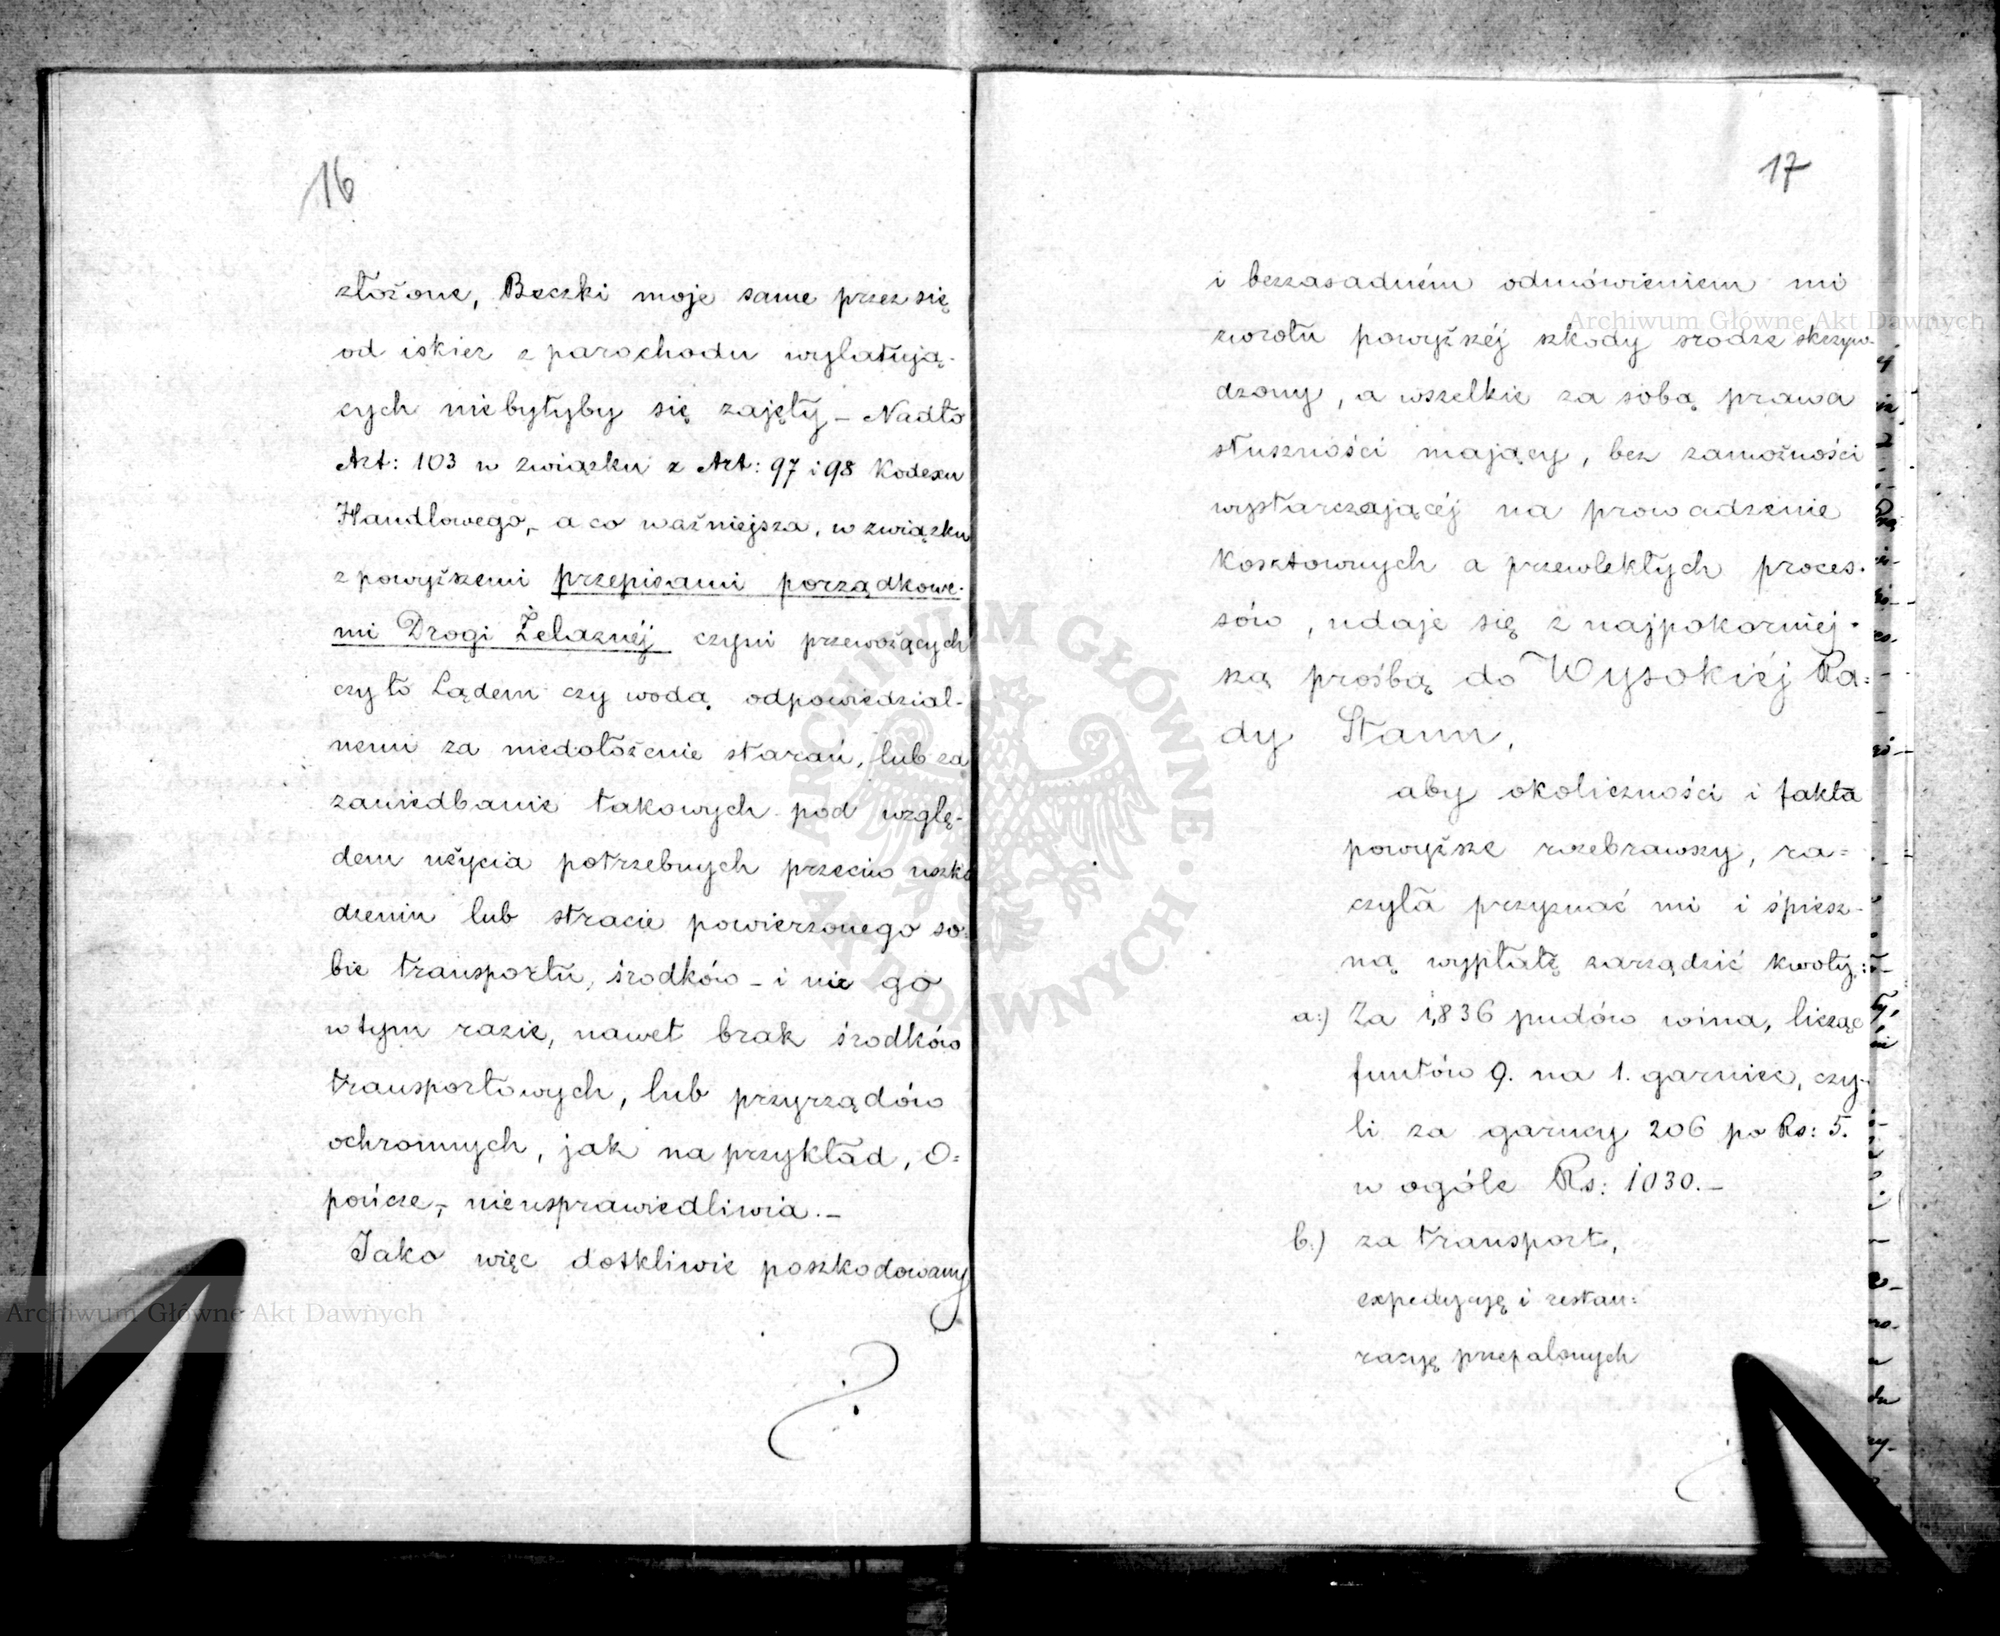 16
złożone, Beczki moje same przez się
od iskier z parochodu wylatują-
cych niebyłyby się zajęły – Nadto
Art: 103 w związku z Art: 97 i 98 Kodexu
Handlowego, – a co ważniejsza, w związku
z powyższemi przepisami porządkowe-
mi Drogi Żelaznéj czyni przewożących
czy to Lądem czy wodą odpowiedzial-
nemi za niedołożenie starań, lub za
zaniedbanie takowych pod wzglę-
dem użycia potrzebnych przeciw uszko
dzeniu lub stracie powierzonego so=
bie transportu, środków – i nic go
w tym razie, nawet brak środków
transportowych, lub przyrządów
ochronnych, jak na przykład, O=
pończe, – nieusprawiedliwia. –
Jako więc dotkliwie poszkodowany
17
i bezzasadném odmówieniem mi
zwrotu powyższéj szkody srodze skrzyw-
dzony, a wszelkie za sobą prawa
słuszności mający, bez zamożności
wystarczającéj na prowadzenie
kosztownych a przewlekłych proces-
sów, udaje się z najpokorniej-
szą prośbą do Wysokiéj Ra=
dy Stanu,
aby okoliczności i fakta
powyższe rozebrawszy, ra=
czyła przyznać mi i śpiesz-
ną wypłatę zarządzić kwoty:
a:) Za 1,836 pudów wina, licząc
funtów 9. na 1. garniec, czy-
li za garncy 206 po Rs: 5.
w ogóle Rs: 1030. –
b:) za transport,
expedycyę i restau=
racyę przepalonych
Archiwum Główne Akt Dawnych
Archiwum Główne Akt Dawnych
ARCHIWUM GŁÓWNE AKT DAWNYCH